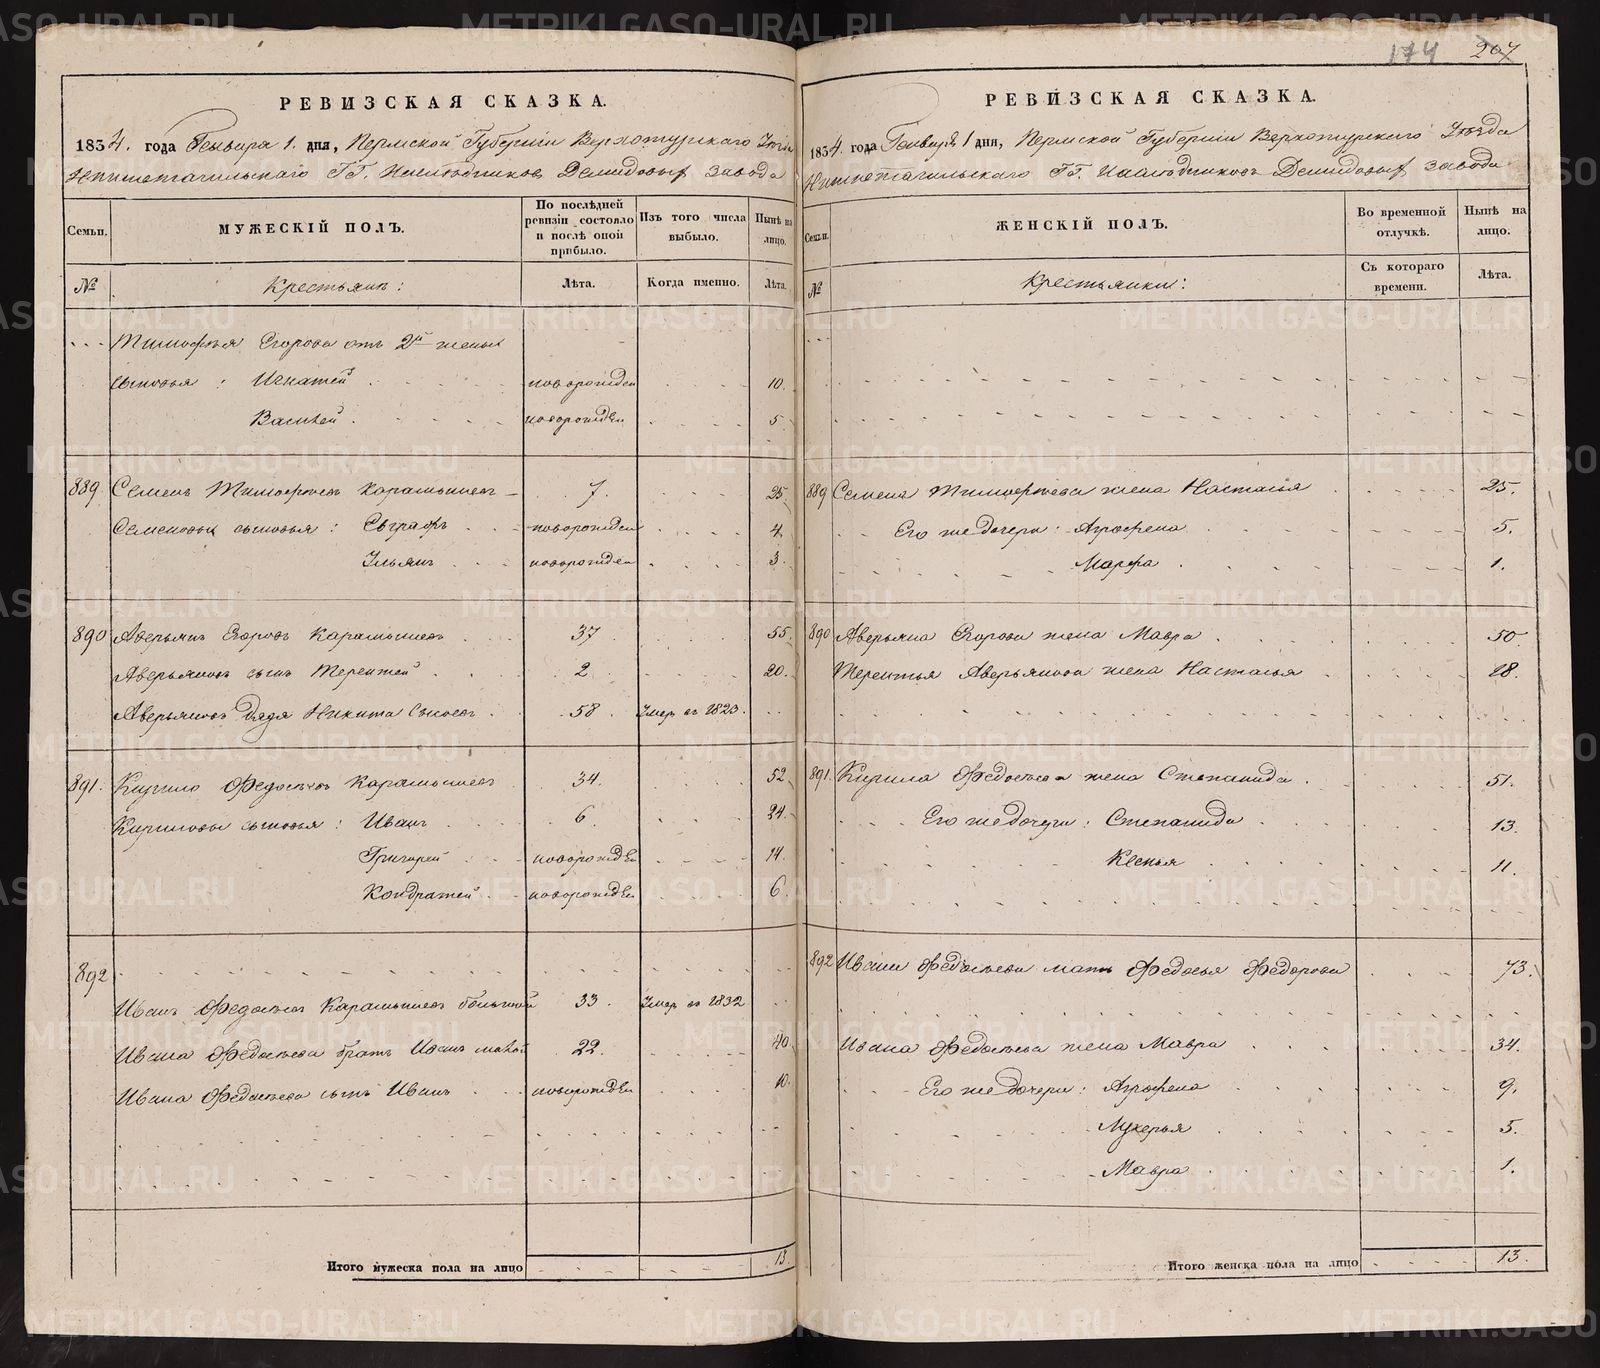 174 207
РЕВИЗСКАЯ СКАЗКА.
1834. года Генваря 1. дня, Пермской Губерніи Верхотурскаго Уѣзда
Нижнетагильскаго ГГ. Наслѣдниковъ Демидовыхъ завода
Семьи.
МУЖЕСКІЙ ПОЛЪ.
По послѣдней ревизіи состояло и послѣ оной прибыло.
Изъ того числа выбыло.
Нынѣ на лицо.
№
Крестьянъ:
Лѣта.
Когда именно.
Лѣта.
Тимофѣя Егорова отъ 2й жены
сыновья: Игнатей новорожден 10.
Василей новорожден 5
889 Семенъ Тимофѣевъ Карамышевъ 7. 25.
Семеновы сыновья: Евграфъ новорожден 4
Ульянъ новорожден 3.
890 Аверьянъ Егоровъ Карамышевъ 37 55.
Аверьяновъ сынъ Терентей 2 20.
Аверьяновъ дядя Никита 58. Умеръ въ 1823.
891. Кирило Федосѣевъ Карамышевъ 34. 52
Кириловы сыновья: Иванъ 6. 24.
Григорей новорожден 14.
Кондратей новорожден 6.
892
Иванъ Федосѣевъ Карамышевъ большой 33. Умеръ въ 1832
Ивана Федосѣева братъ Иванъ малой 22. 40
Ивана Федосѣева сынъ Иванъ новорожден 10.
Итого мужеска пола на лицо 13.
РЕВИЗСКАЯ СКАЗКА.
1834. года Генваря 1 дня, Пермской Губерніи Верхотурскаго Уѣзда
Нижнетагильскаго ГГ. Наслѣдниковъ Демидовыхъ завода
Семьи.
ЖЕНСКІЙ ПОЛЪ.
Во временной отлучкѣ.
Нынѣ на лицо.
№
Крестьянки:
Съ котораго времени.
Лѣта.
889 Семена Тимофѣева жена Настасья 25.
Его же дочери: Агрофена 5.
Марфа 1.
890 Аверьяна Егорова жена Мавра 50
Терентья Аверьянова жена Настасья 18.
891. Кирила Федосѣева жена Степанида 51.
Его же дочери: Степанида 13.
Ксенья 11.
892 Ивана Федосѣева мать Федосья Федорова 73.
Ивана Федосѣева жена Мавра 34.
Его же дочери: Агрофена 9.
Лукерья 5.
Мавра 1.
Итого женска пола на лицо 13.
METRIKI.GASO-URAL.RU